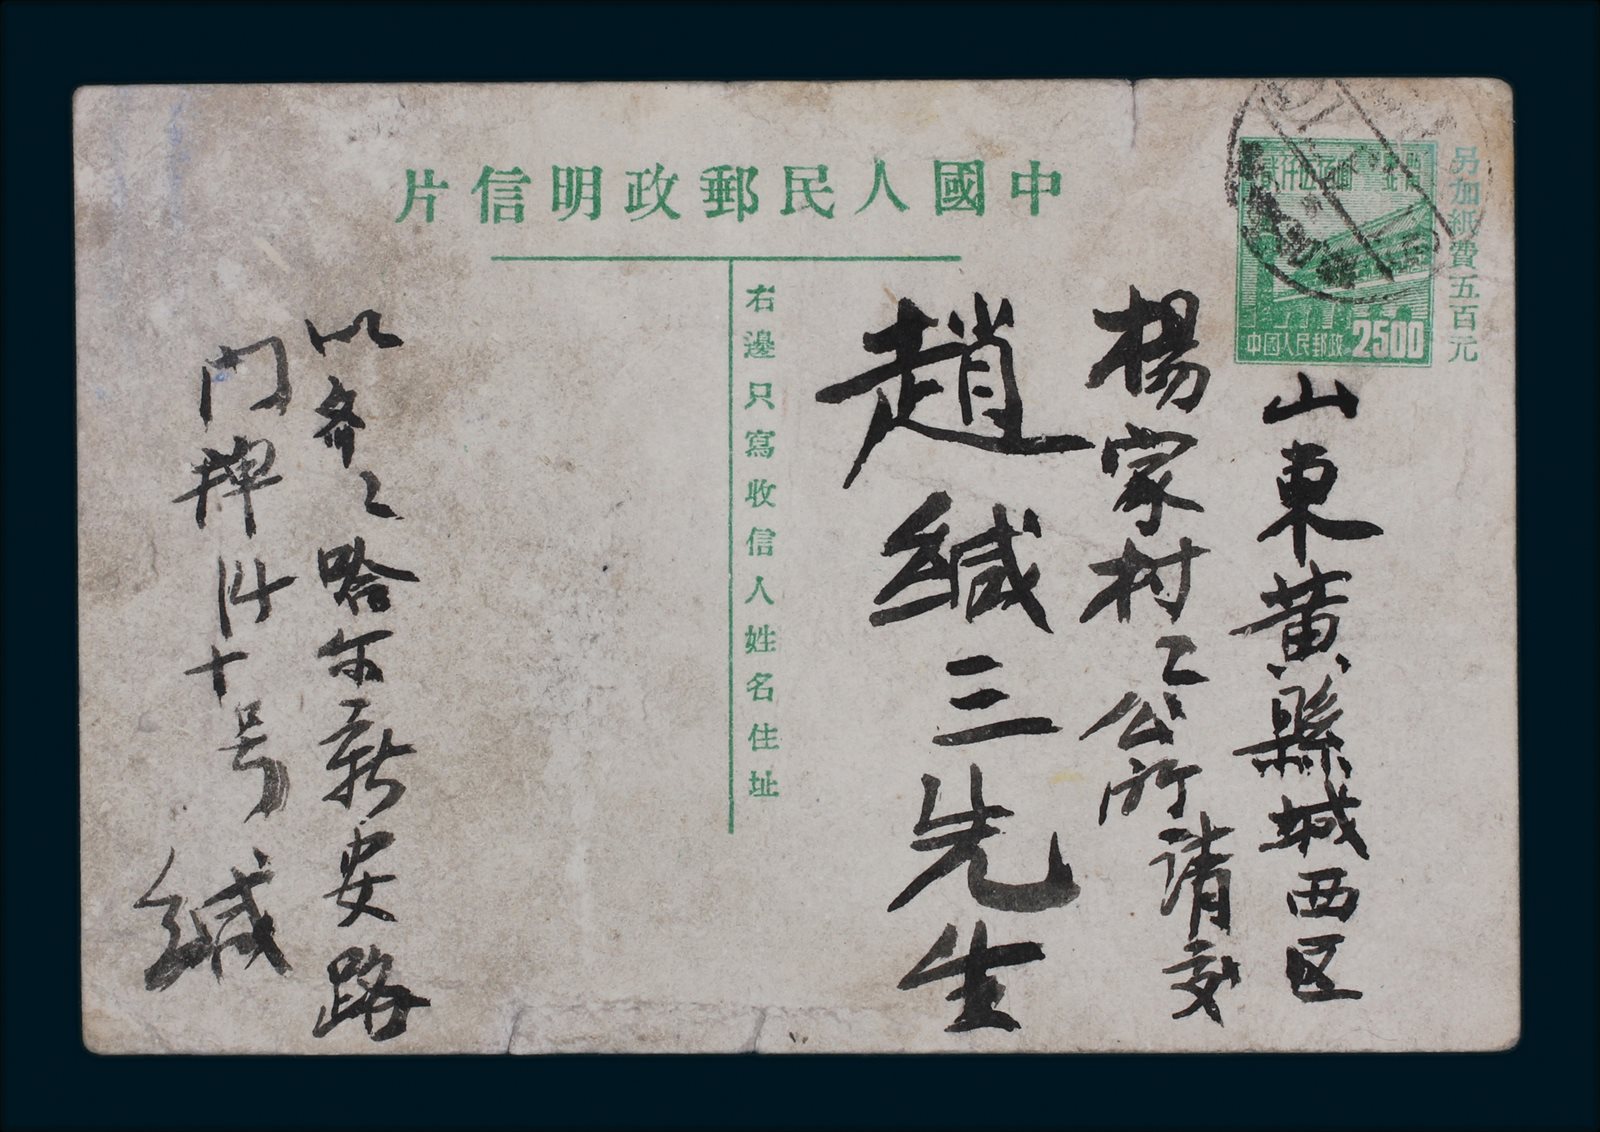 中國人民郵政明信片
另加紙費五百元
中國人民郵政 2500
山東黃縣城西区
楊家村々公所請交
趙緘三先生
右邊只寫收信人姓名住址
齐々哈尔新安路
门牌卅十号
緘